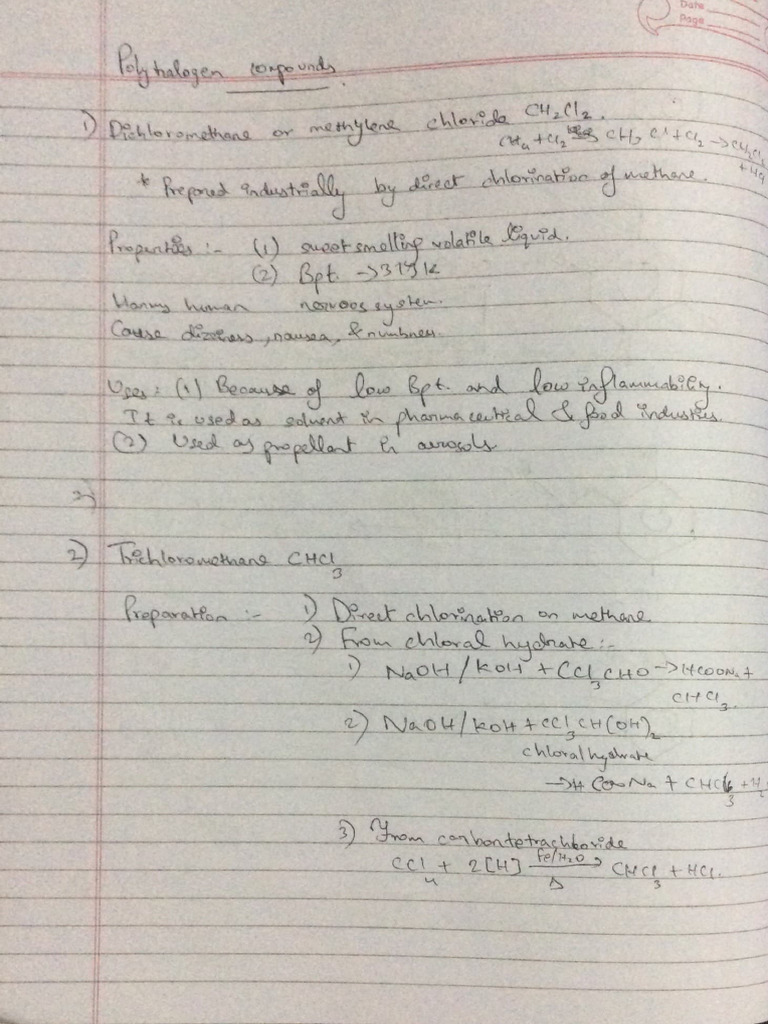 Date
Page
Polyhalogen compounds.
1) Dichloromethane or methylene chloride CH2Cl2.
CH4 + Cl2 CH3 Cl + Cl2 → CH2Cl2 + HCl
* Prepared industrially by direct chlorination of methane.
Properties :- (1) sweet smelling volatile liquid.
(2) Bpt. → 313 K
Harms human nervous system.
Cause dizziness, nausea, & numbness.
Uses : (1) Because of low Bpt. and low inflammability.
It is used as solvent in pharmaceutical & food industries.
(2) Used as propellant in aerosols
2)
2) Trichloromethane CHCl3
Preparation :- 1) Direct chlorination on methane
2) From chloral hydrate :-
1) NaOH / KOH + CCl3CHO → HCOONa +
CHCl3.
2) NaOH / KOH + CCl3CH(OH)2
chloral hydrate
→ H COONa + CHCl3 + H2
3) From carbontetrachloride
CCl4 + 2[H] Fe/H2O → Δ CHCl3 + HCl.